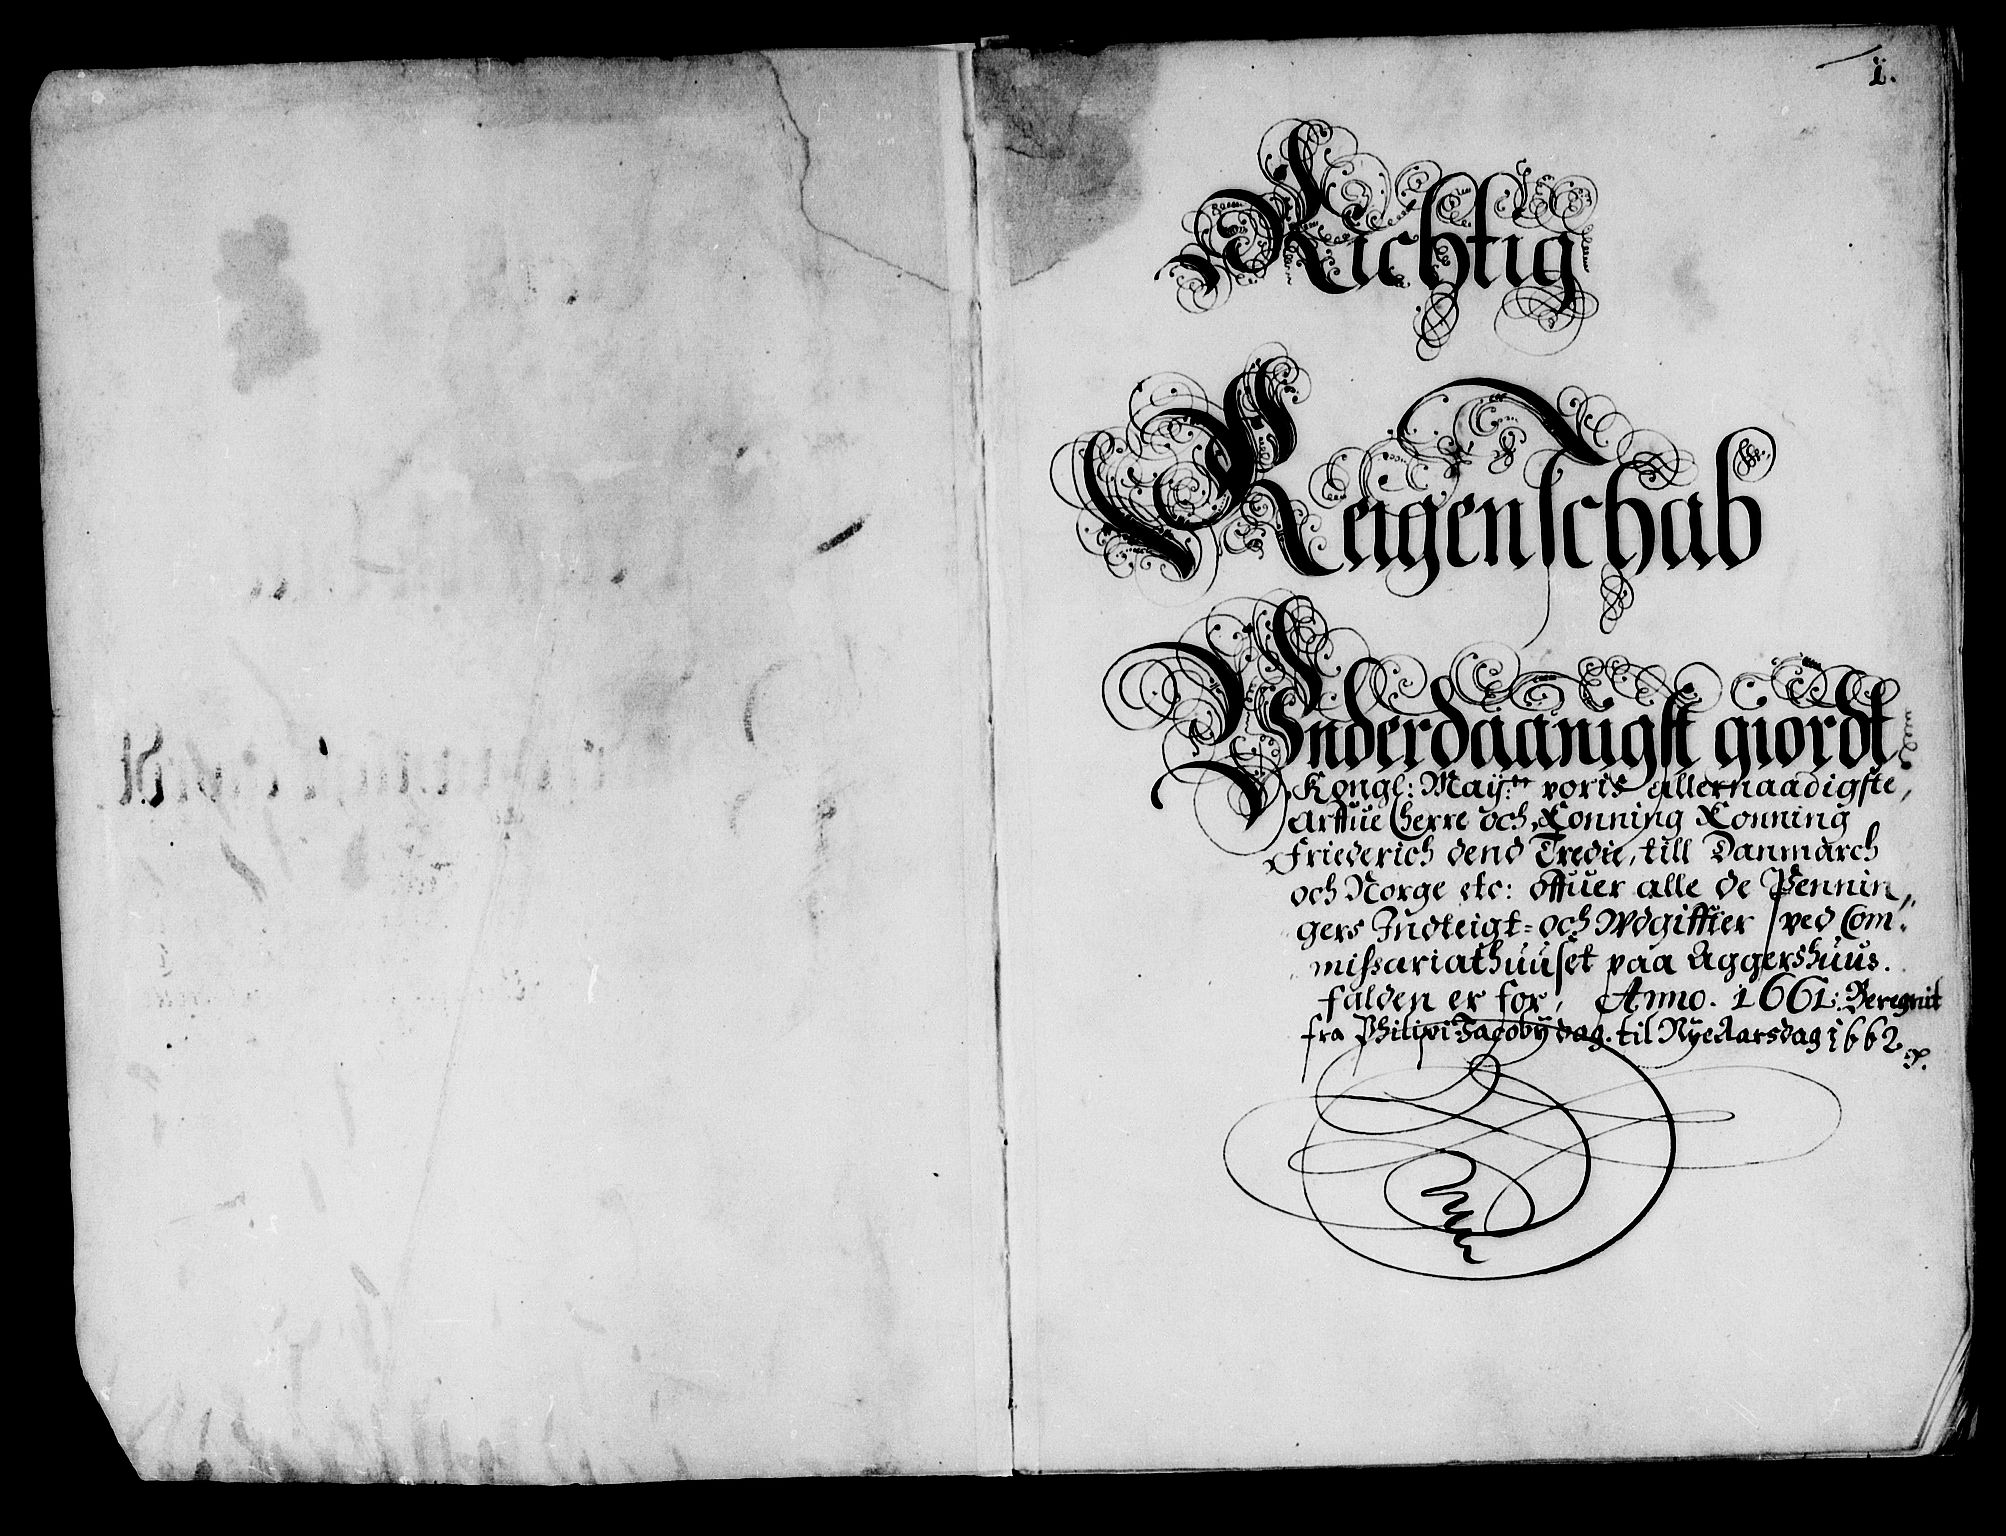 1.
Richtig
Reigenschab
Vnderdaanigst giordt
Kongl: May:tt voris allernaadigste,
Arffue Herre och Konning Konning
Friederich dend Tredie, till Danmarch
och Norge etc: offuer alle de Pennin,,
gers Indteigt= och Wdgiffter ved Com:
missariathuuset paa Aggershuus.
falden er for, Anno. 1661: Beregnit
fra Philipi Jacobÿ dag. til Nyeaarsdag 1662